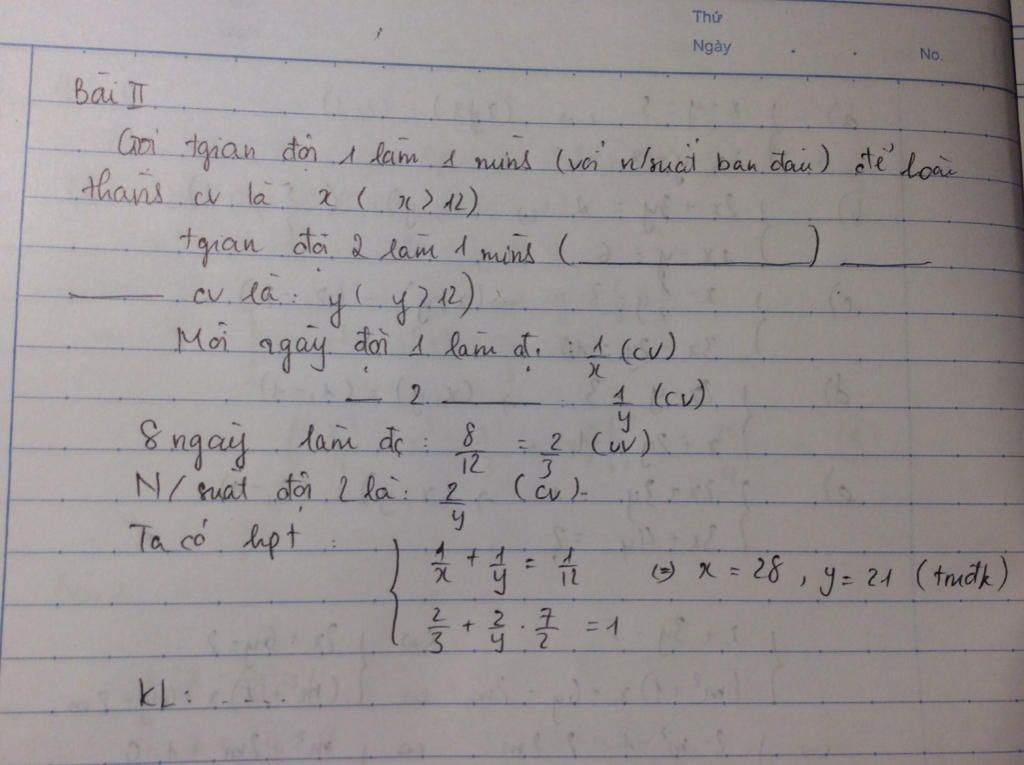 Thứ
Ngày . . No.
Bài II
Gọi tgian đội 1 làm 1 mình (với n/suất ban đầu) để hoàn
thành cv là x (x > 12)
tgian đội 2 làm 1 mình (______) ____
____ cv là : y (y > 12)
Mỗi ngày đội 1 làm đ. : 1/x (cv)
__ 2 ____ 1/y (cv)
8 ngày làm đc : 8/12 = 2/3 (cv)
N/suất đội 2 là : 2/y (cv)
Ta có hpt :
{ 1/x + 1/y = 1/12 (=) x = 28 , y = 21 (tmđk)
2/3 + 2/y . 7/2 = 1
KL : .....